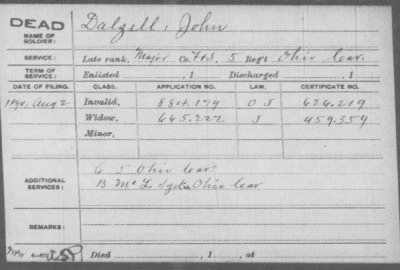 DEAD
NAME OF SOLDIER: Dalzell, John
SERVICE: Late rank, Major Co. F&S, 5 Reg't Ohio Cav.
TERM OF SERVICE: Enlisted , 1 Discharged , 1
DATE OF FILING. CLASS. APPLICATION NO. LAW. CERTIFICATE NO.
1890, Aug 2 Invalid, 880.179 O J 626.219
Widow, 645.222 J 459.359
Minor,
ADDITIONAL SERVICES: G 5 Ohio Cav.
B Mc L Sqdn Ohio Cav
REMARKS:
Died , 1 , at